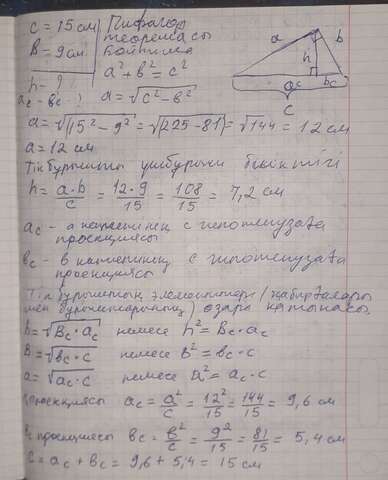 c = 15 см
b = 9 см
h - ?
a_c - b_c - ?
Пифагор
теоремасы
бойынша
a² + b² = c²
a = √(c² - b²)
a b
h
a_c b_c
c
a = √(15² - 9²) = √(225 - 81) = √144 = 12 см
a = 12 см
Тік бұрышты үшбұрыш биіктігі
h = a·b/c = 12·9/15 = 108/15 = 7,2 см
a_c - а катетінің с гипотенузаға
проекциясы
b_c - в катетінің с гипотенузаға
проекциясы
Тік бұрыштың элементтері (қабырғалары
мен бұрыштарының) өзара қатынасы
h = √(b_c · a_c) немесе h² = b_c · a_c
b = √(b_c · c) немесе b² = b_c · c
a = √(a_c · c) немесе a² = a_c · c
проекциясы a_c = a²/c = 12²/15 = 144/15 = 9,6 см
проекциясы b_c = b²/c = 9²/15 = 81/15 = 5,4 см
c = a_c + b_c = 9,6 + 5,4 = 15 см